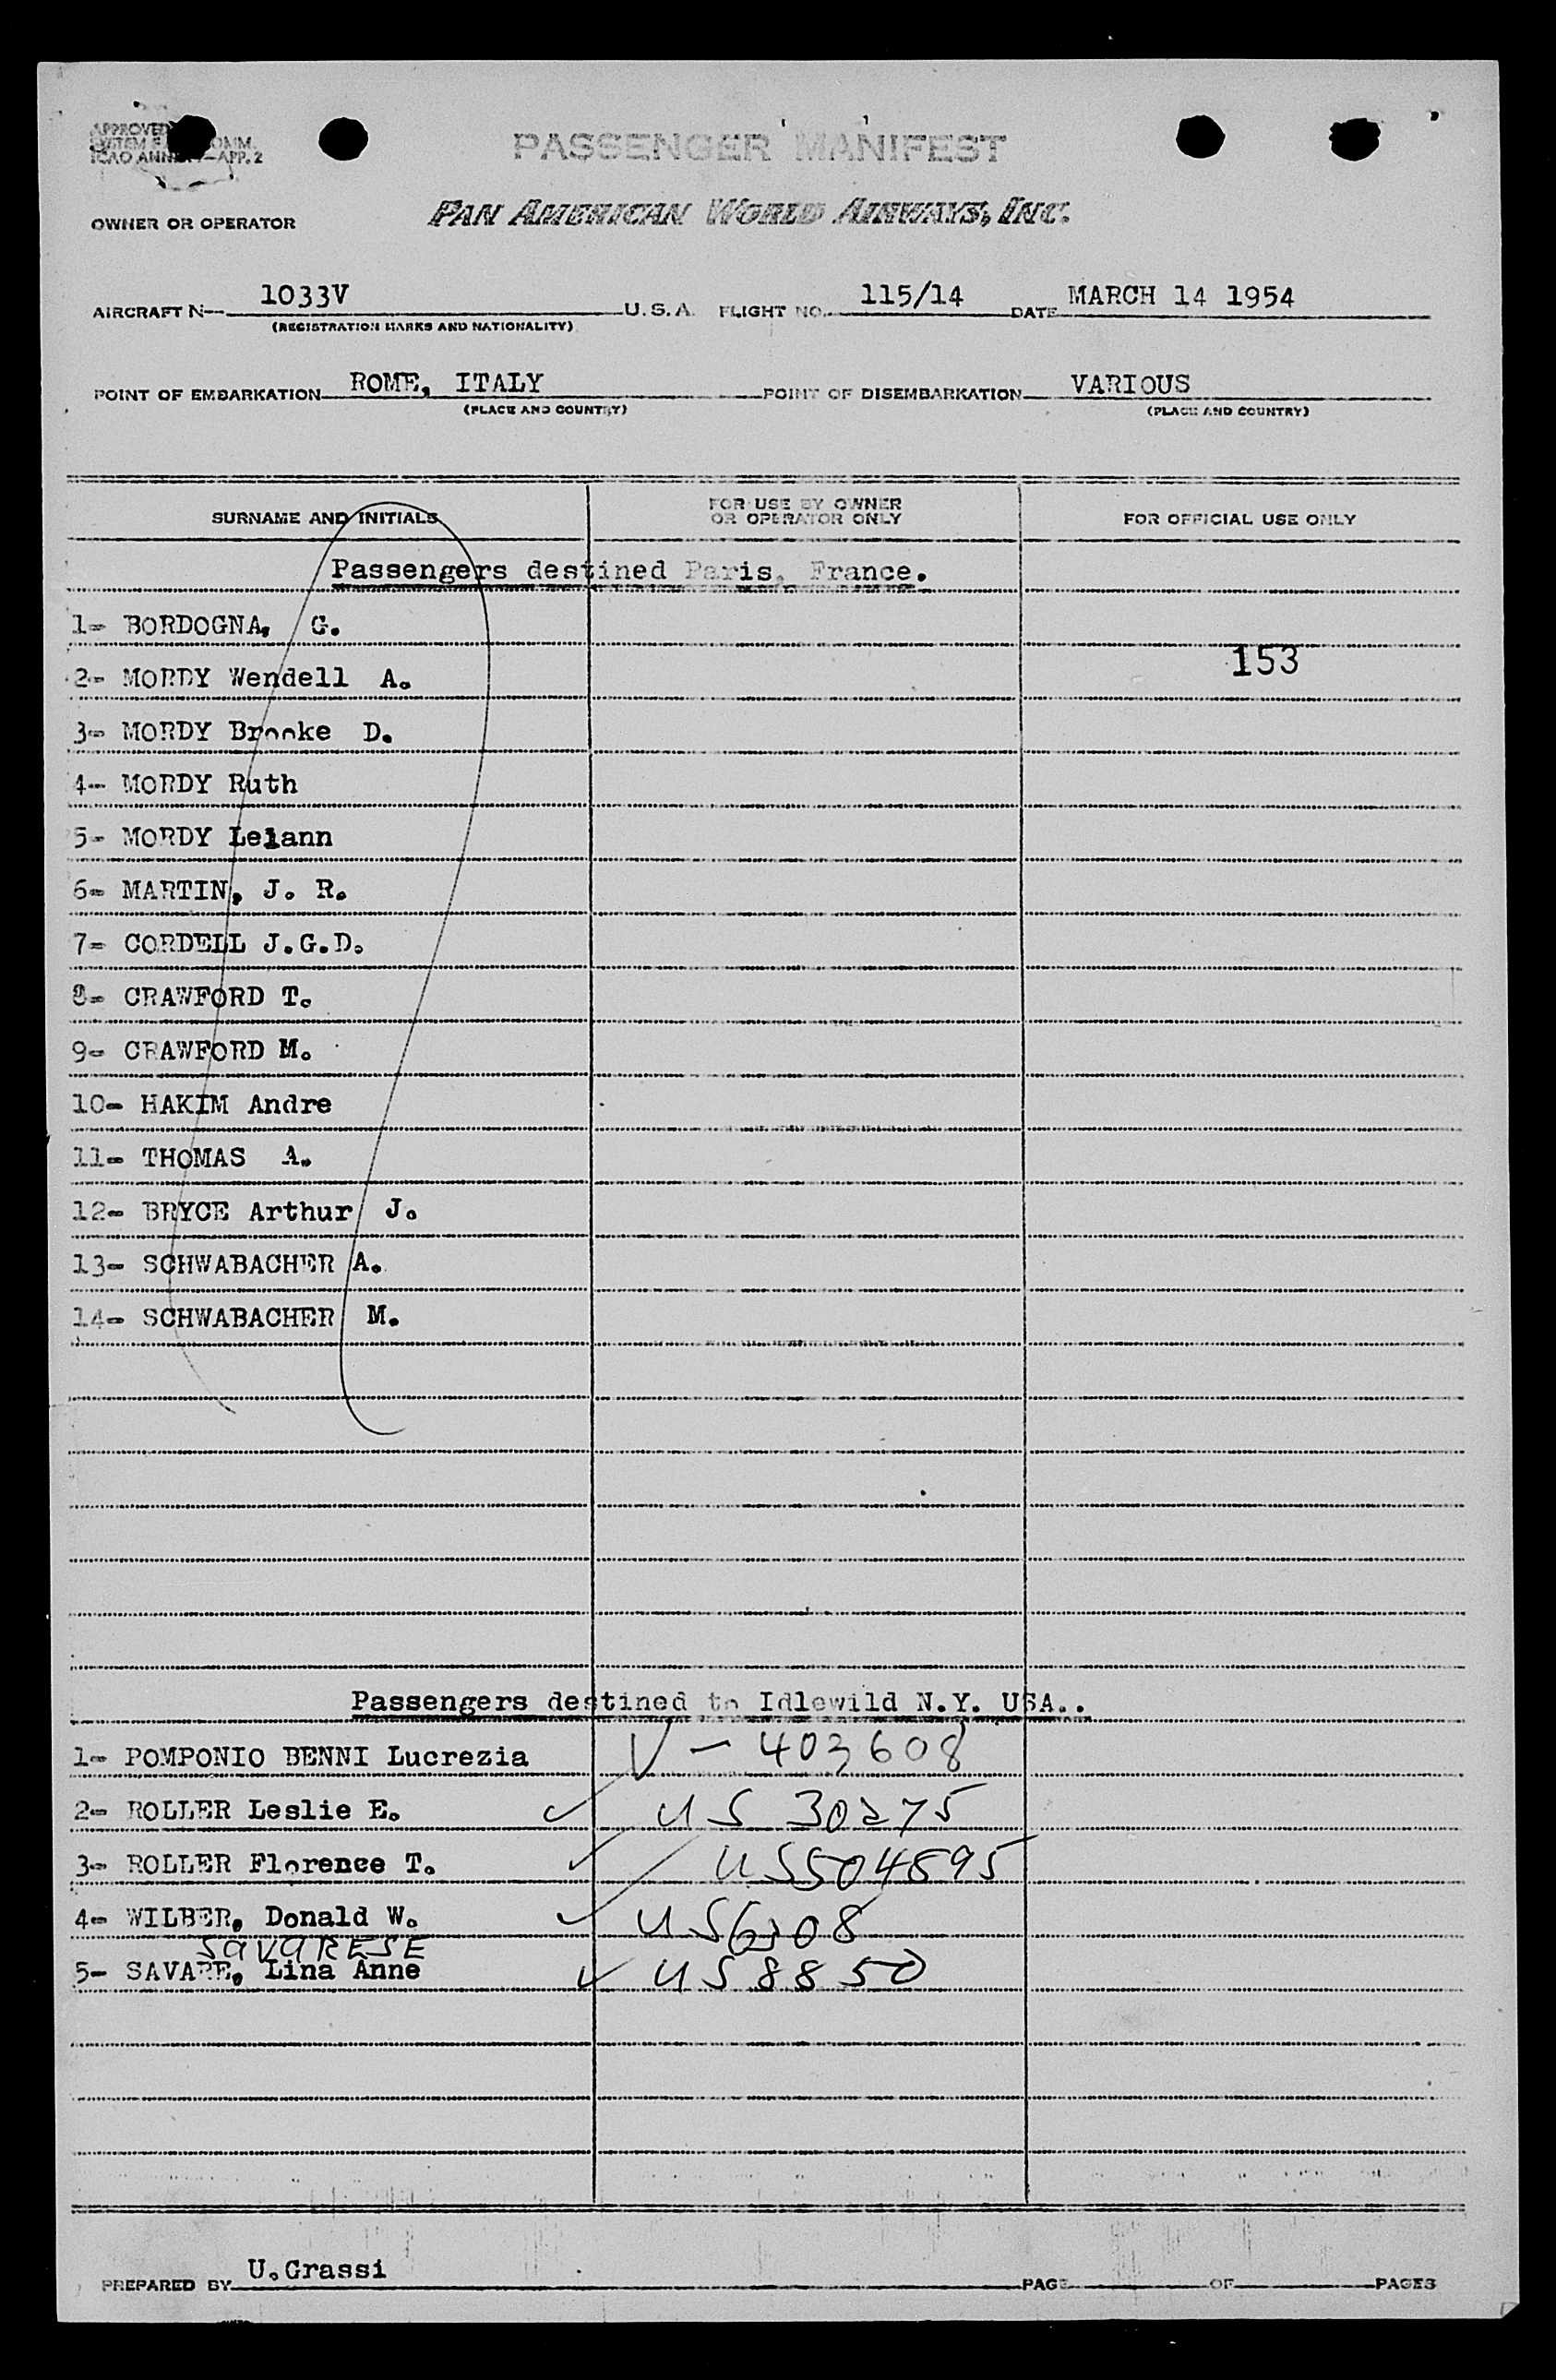 APPROVED
SYSTEM COMM.
ICAO ANNEX —APP. 2
PASSENGER MANIFEST
OWNER OR OPERATOR PAN AMERICAN WORLD AIRWAYS, INC.
AIRCRAFT N— 1033V U.S.A. FLIGHT NO. 115/14 DATE MARCH 14 1954
(REGISTRATION MARKS AND NATIONALITY)
POINT OF EMBARKATION ROME, ITALY POINT OF DISEMBARKATION VARIOUS
(PLACE AND COUNTRY) (PLACE AND COUNTRY)
SURNAME AND INITIALS FOR USE BY OWNER OR OPERATOR ONLY FOR OFFICIAL USE ONLY
Passengers destined Paris, France.
1- BORDOGNA, G.
153
2- MORDY Wendell A.
3- MORDY Brooke D.
4- MORDY Ruth
5- MORDY Lelann
6- MARTIN, J. R.
7- CORDELL J.G.D.
8- CRAWFORD T.
9- CRAWFORD M.
10- HAKIM Andre
11- THOMAS A.
12- BRYCE Arthur J.
13- SCHWABACHER A.
14- SCHWABACHER M.
Passengers destined to Idlewild N.Y. USA..
1- POMPONIO BENNI Lucrezia V - 403608
2- ROLLER Leslie E. ✓ US 30275
3- ROLLER Florence T. ✓ US504895
4- WILBER, Donald W. ✓ US
SAVARESE
5- SAVARE, Lina Anne ✓ US 8850
PREPARED BY U.Grassi PAGE OF PAGES